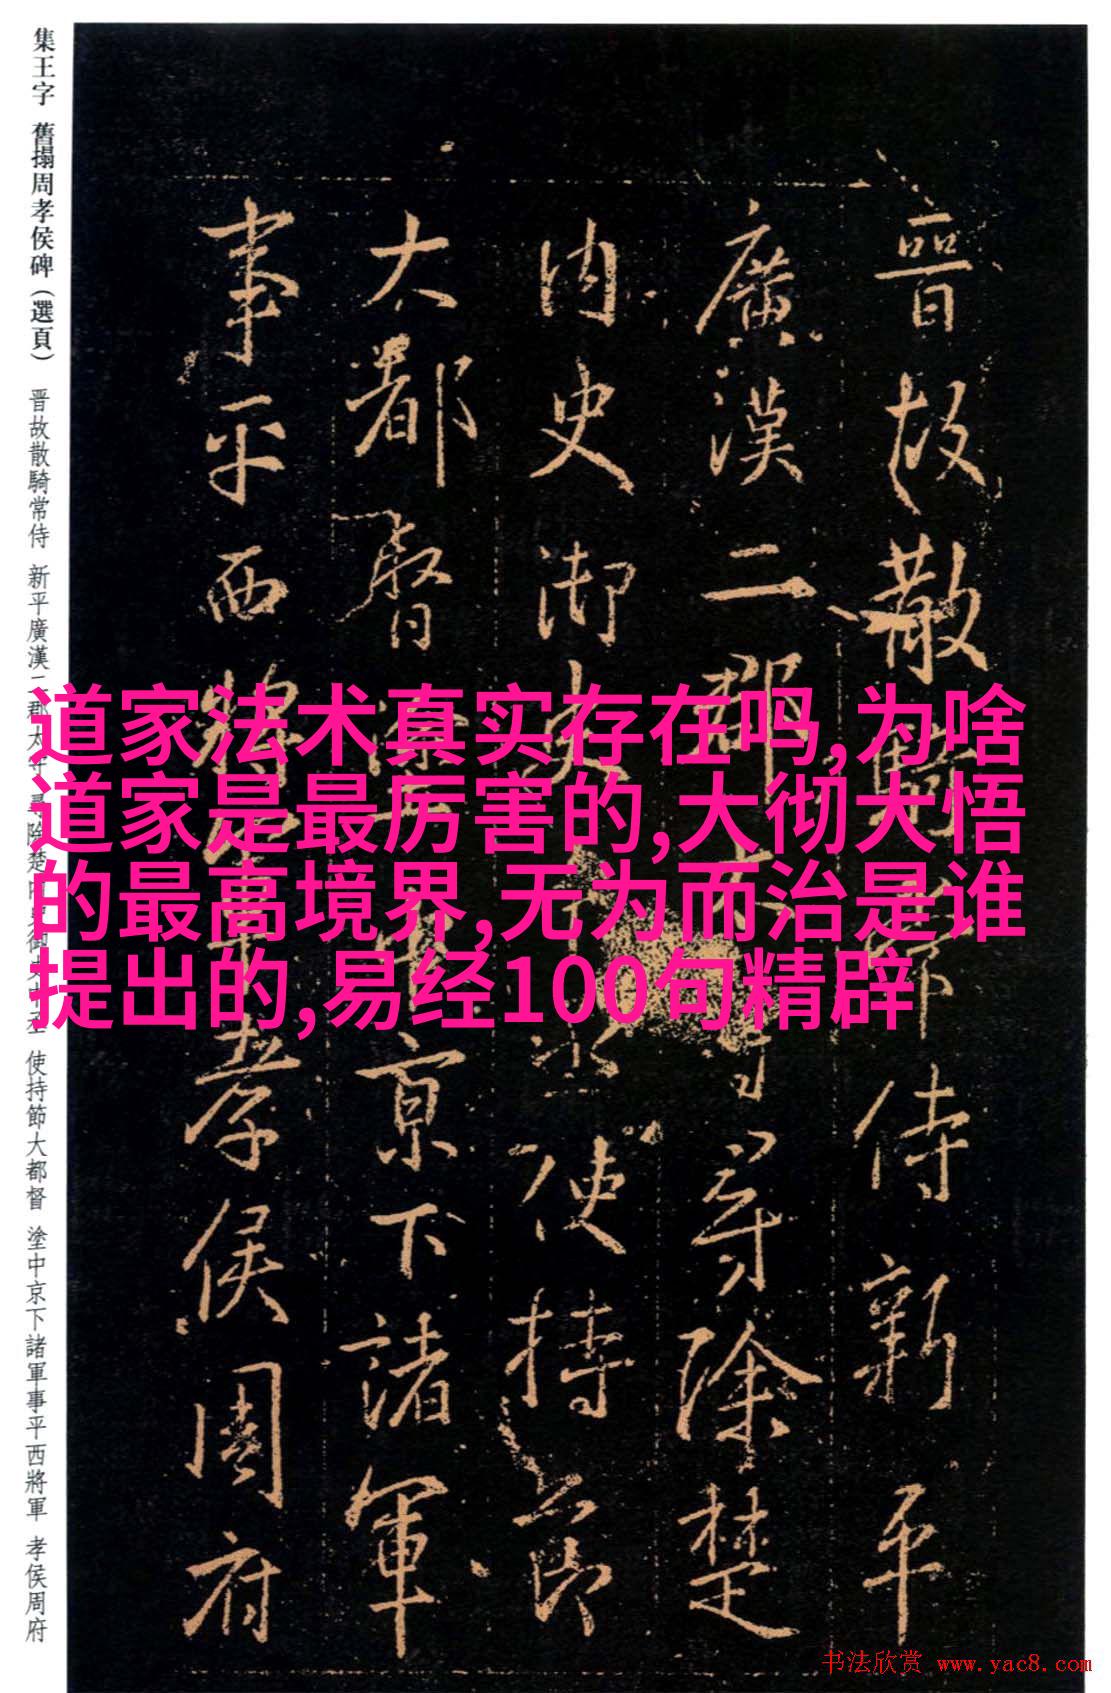 集王字 舊搨周孝侯碑（選頁） 晋故散騎常侍 新平廣漢二郡太守 尋除楚内史御史中丞 使持節大都督 塗中京下諸軍事平西將軍 孝侯周府
晉故散騎常侍新平
廣漢二郡太守尋除楚
内史御史中丞使持節
大都督塗中京下諸軍
事平西將軍孝侯周府
道家法术真实存在吗,为啥
道家是最厉害的,大彻大悟
的最高境界,无为而治是谁
提出的,易经100句精辟
书法欣赏 www.yac8.com